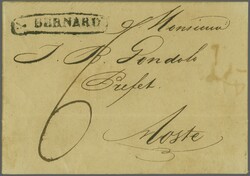 S. BERNARD
Monsieur
J. B. Gondoli
Prefet.
Aoste
6